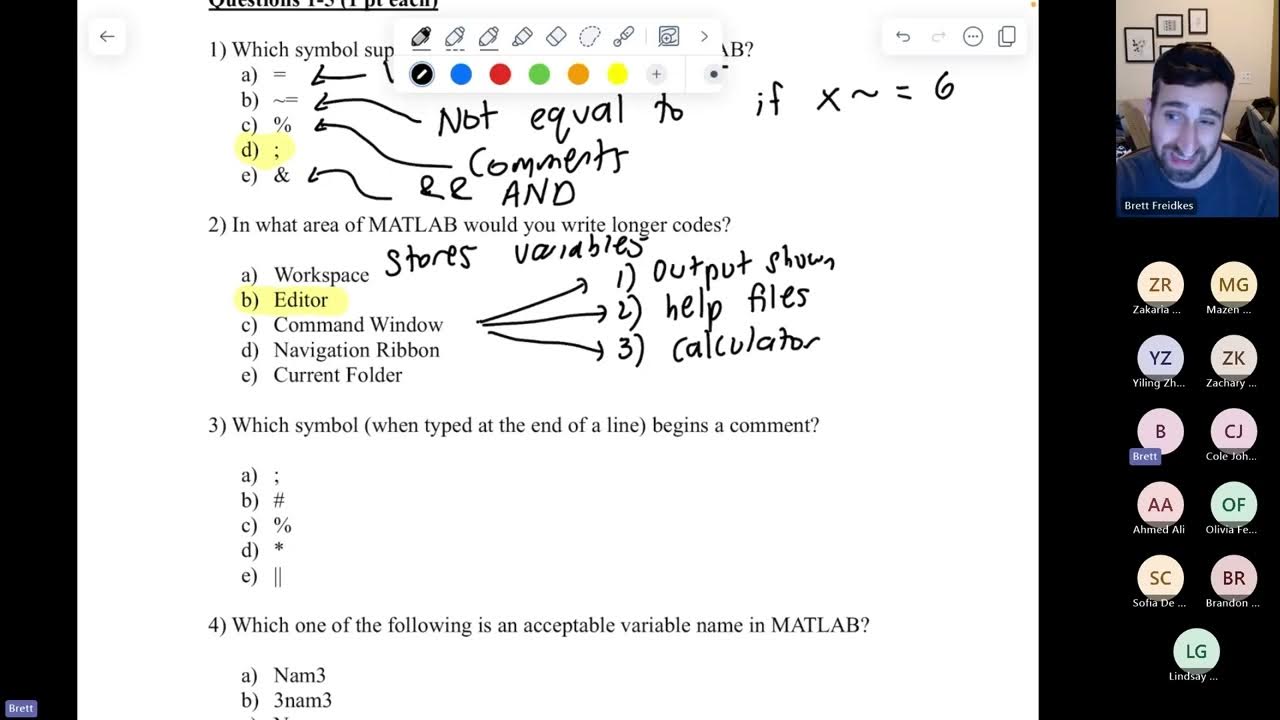 Questions 1-5 (1 pt each)
1) Which symbol sup AB?
a) =
b) ~= Not equal to if x ~ = 6
c) % Comments
d) ;
e) & && AND
2) In what area of MATLAB would you write longer codes?
a) Workspace stores variables
b) Editor
c) Command Window
d) Navigation Ribbon
e) Current Folder
1) output shown
2) help files
3) calculator
3) Which symbol (when typed at the end of a line) begins a comment?
a) ;
b) #
c) %
d) *
e) ||
4) Which one of the following is an acceptable variable name in MATLAB?
a) Nam3
b) 3nam3
Brett
Brett Freidkes
ZR MG
Zakaria ... Mazen ...
YZ ZK
Yiling Zh... Zachary ...
B CJ
Brett Cole Joh...
AA OF
Ahmed Ali Olivia Fe...
SC BR
Sofia De ... Brandon ...
LG
Lindsay ...